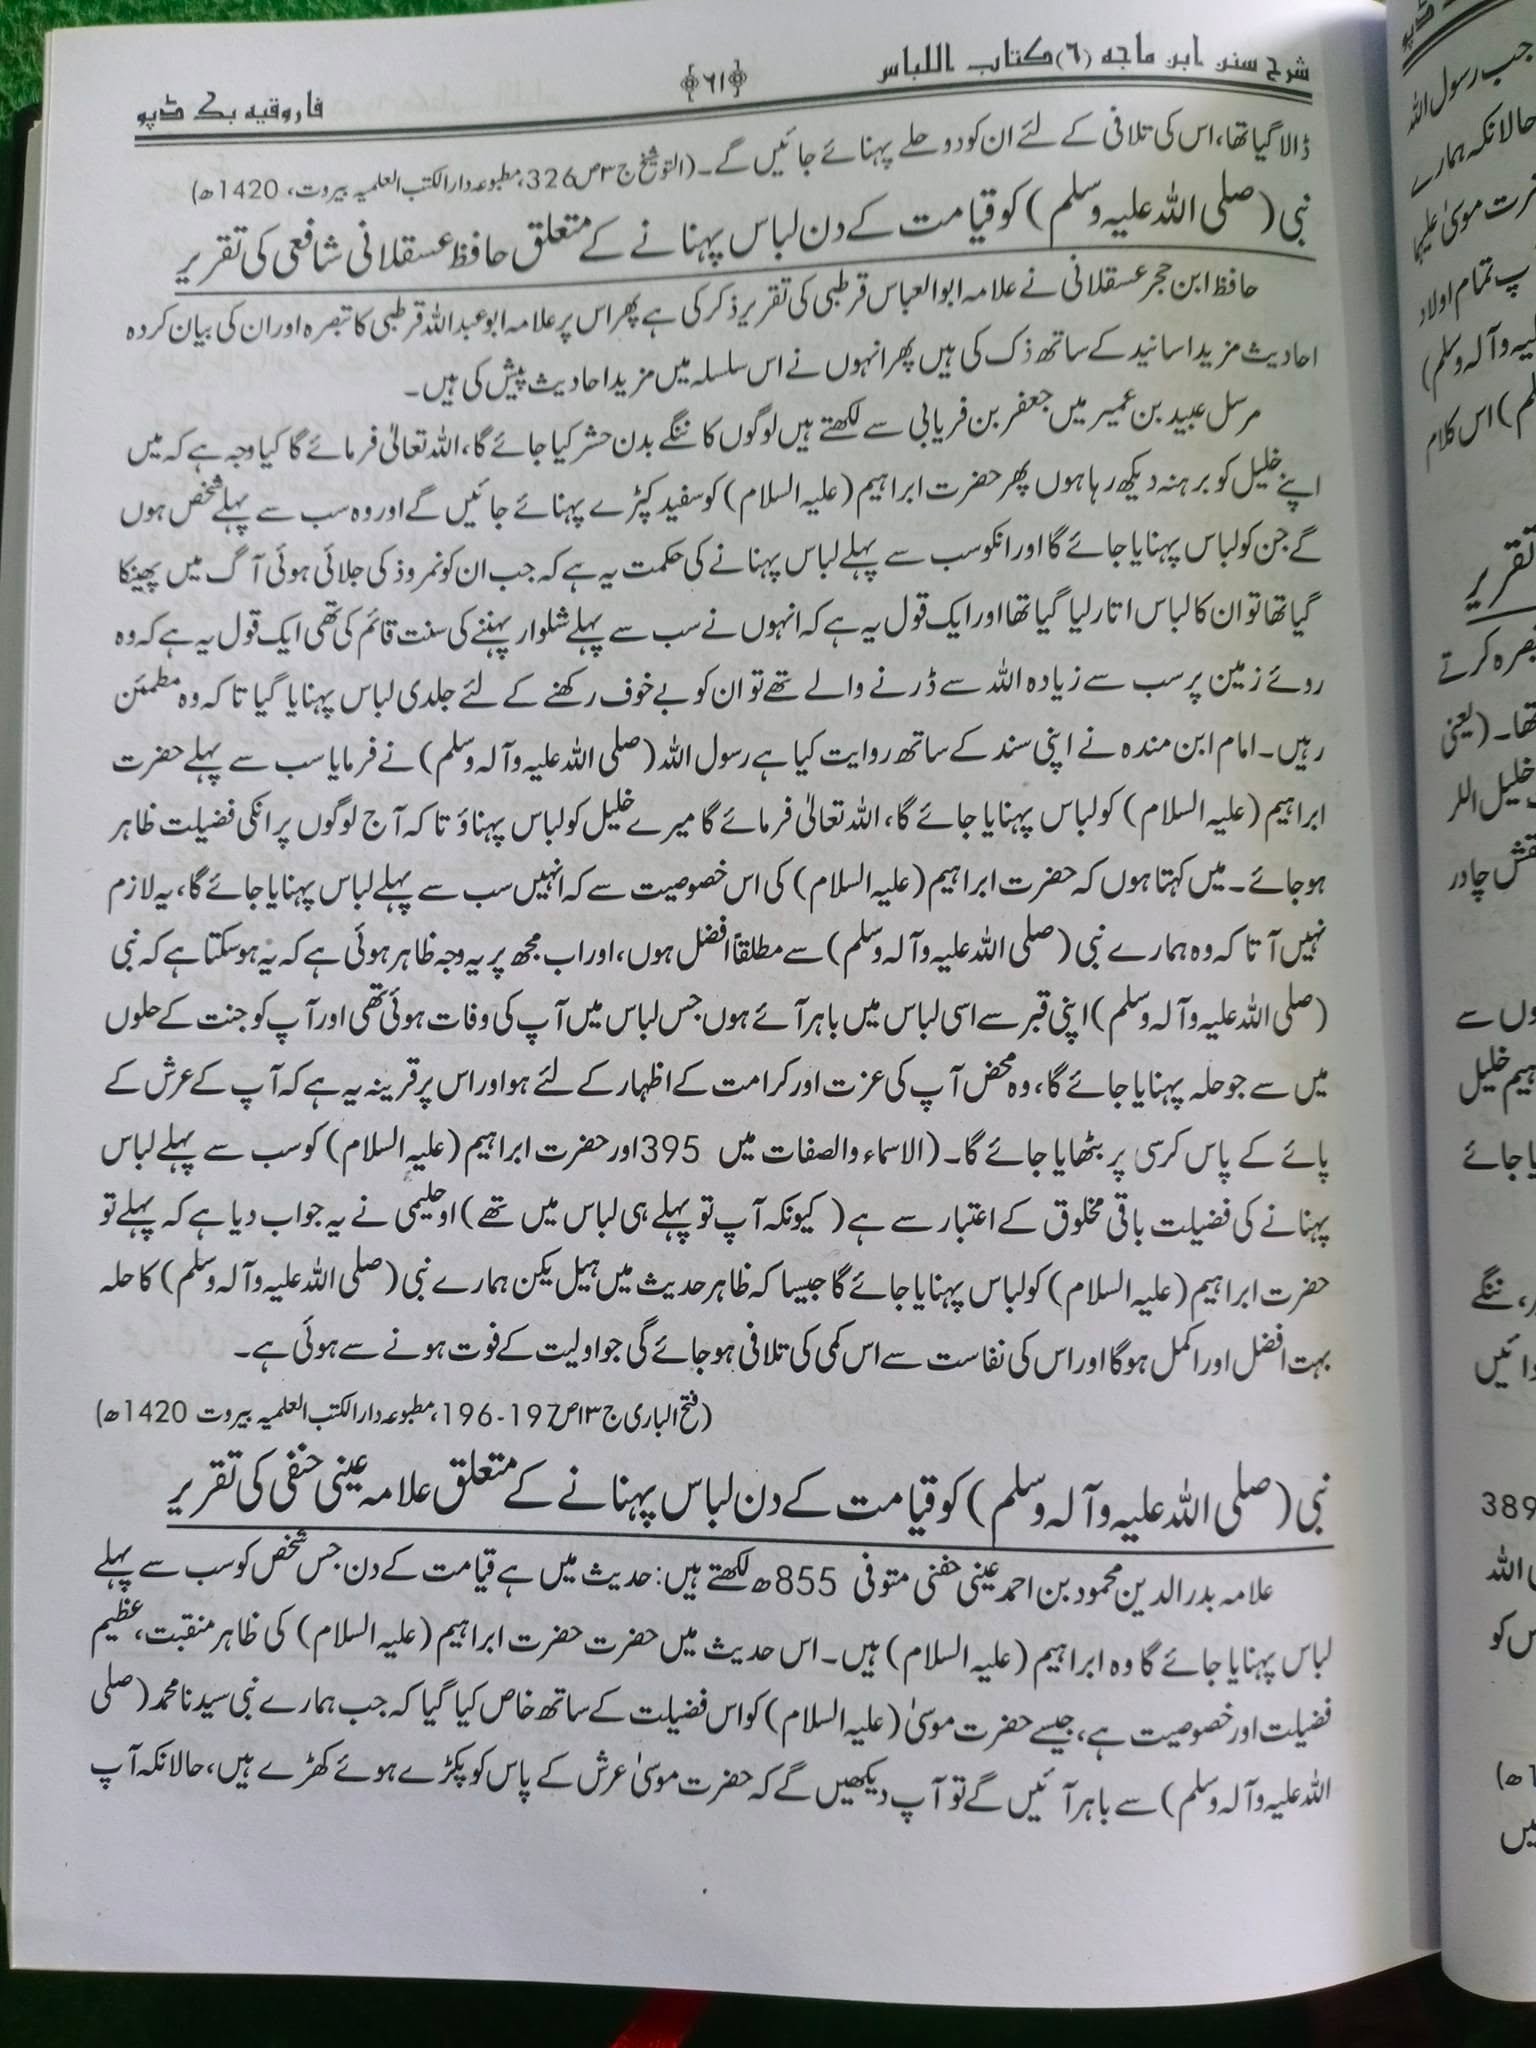 شرح سنن ابن ماجه (٦) كتاب اللباس
﴿٦١﴾
فاروقیہ بک ڈپو
ڈالا گیا تھا، اس کی تلافی کے لئے ان کو دو حلے پہنائے جائیں گے۔ (التوشیح ج ۳ ص 326، مطبوعہ دار الکتب العلمیہ بیروت، 1420ھ)
نبی (صلی اللہ علیہ وسلم) کو قیامت کے دن لباس پہنانے کے متعلق حافظ عسقلانی شافعی کی تقریر
حافظ ابن حجر عسقلانی نے علامہ ابوالعباس قرطبی کی تقریر ذکر کی ہے پھر اس پر علامہ ابو عبداللہ قرطبی کا تبصرہ اور ان کی بیان کردہ
احادیث مزید اسانید کے ساتھ ذک کی ہیں پھر انہوں نے اس سلسلہ میں مزید احادیث پیش کی ہیں۔
مرسل عبید بن عمیر میں جعفر بن فریابی سے لکھتے ہیں لوگوں کا ننگے بدن حشر کیا جائے گا، اللہ تعالیٰ فرمائے گا کیا وجہ ہے کہ میں
اپنے خلیل کو برہنہ دیکھ رہا ہوں پھر حضرت ابراہیم (علیہ السلام) کو سفید کپڑے پہنائے جائیں گے اور وہ سب سے پہلے شخص ہوں
گے جن کو لباس پہنایا جائے گا اور انکو سب سے پہلے لباس پہنانے کی حکمت یہ ہے کہ جب ان کو نمروذ کی جلائی ہوئی آگ میں پھینکا
گیا تھا تو ان کا لباس اتار لیا گیا تھا اور ایک قول یہ ہے کہ انہوں نے سب سے پہلے شلوار پہننے کی سنت قائم کی تھی ایک قول یہ ہے کہ وہ
روئے زمین پر سب سے زیادہ اللہ سے ڈرنے والے تھے تو ان کو بے خوف رکھنے کے لئے جلدی لباس پہنایا گیا تا کہ وہ مطمئن
رہیں۔ امام ابن مندہ نے اپنی سند کے ساتھ روایت کیا ہے رسول اللہ (صلی اللہ علیہ وآلہ وسلم) نے فرمایا سب سے پہلے حضرت
ابراہیم (علیہ السلام) کو لباس پہنایا جائے گا، اللہ تعالیٰ فرمائے گا میرے خلیل کو لباس پہناؤ تا کہ آج لوگوں پر انکی فضیلت ظاہر
ہو جائے۔ میں کہتا ہوں کہ حضرت ابراہیم (علیہ السلام) کی اس خصوصیت سے کہ انہیں سب سے پہلے لباس پہنایا جائے گا، یہ لازم
نہیں آتا کہ وہ ہمارے نبی (صلی اللہ علیہ وآلہ وسلم) سے مطلقاً افضل ہوں، اور اب مجھ پر یہ وجہ ظاہر ہوئی ہے کہ یہ ہو سکتا ہے کہ نبی
(صلی اللہ علیہ وآلہ وسلم) اپنی قبر سے اسی لباس میں باہر آئے ہوں جس لباس میں آپ کی وفات ہوئی تھی اور آپ کو جنت کے حلوں
میں سے جو حلہ پہنایا جائے گا، وہ محض آپ کی عزت اور کرامت کے اظہار کے لئے ہو اور اس پر قرینہ یہ ہے کہ آپ کے عرش کے
پائے کے پاس کرسی پر بٹھایا جائے گا۔ (الاسماء والصفات میں 395 اور حضرت ابراہیم (علیہ السلام) کو سب سے پہلے لباس
پہنانے کی فضیلت باقی مخلوق کے اعتبار سے ہے (کیونکہ آپ تو پہلے ہی لباس میں تھے) او حلیمی نے یہ جواب دیا ہے کہ پہلے تو
حضرت ابراہیم (علیہ السلام) کو لباس پہنایا جائے گا جیسا کہ ظاہر حدیث میں ہیل یکن ہمارے نبی (صلی اللہ علیہ وآلہ وسلم) کا حلہ
بہت افضل اور اکمل ہوگا اور اس کی نفاست سے اس کمی کی تلافی ہو جائے گی جو اولیت کے فوت ہونے سے ہوئی ہے۔
(فتح الباری ج ۱۳ ص 197-196، مطبوعہ دار الکتب العلمیہ بیروت 1420ھ)
نبی (صلی اللہ علیہ وآلہ وسلم) کو قیامت کے دن لباس پہنانے کے متعلق علامہ عینی حنفی کی تقریر
علامہ بدر الدین محمود بن احمد عینی حنفی متوفی 855ھ لکھتے ہیں: حدیث میں ہے قیامت کے دن جس شخص کو سب سے پہلے
لباس پہنایا جائے گا وہ ابراہیم (علیہ السلام) ہیں۔ اس حدیث میں حضرت حضرت ابراہیم (علیہ السلام) کی ظاہر منقبت، عظیم
فضیلت اور خصوصیت ہے، جیسے حضرت موسیٰ (علیہ السلام) کو اس فضیلت کے ساتھ خاص کیا گیا کہ جب ہمارے نبی سیدنا محمد (صلی
اللہ علیہ وآلہ وسلم) سے باہر آئیں گے تو آپ دیکھیں گے کہ حضرت موسیٰ عرش کے پاس کو پکڑے ہوئے کھڑے ہیں، حالانکہ آپ
جب رسول اللہ
حالانکہ ہمارے
پ تمام اولاد
اس کلام
تقریر
تبصرہ کرتے
تھا۔ (یعنی
چادر
وں سے
ہیم خلیل
یا جائے
ننگے
389
اللہ
س کو